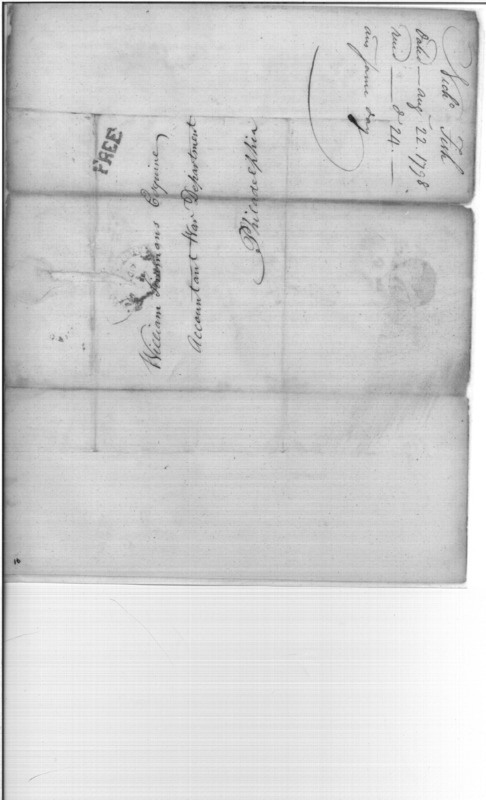 FREE
William Simmons Esquire
Accountant War Department
Philadelphia
Nichs. Fish
Dated — Aug 22. 1798
Recd — d 24. —
ans same day
16